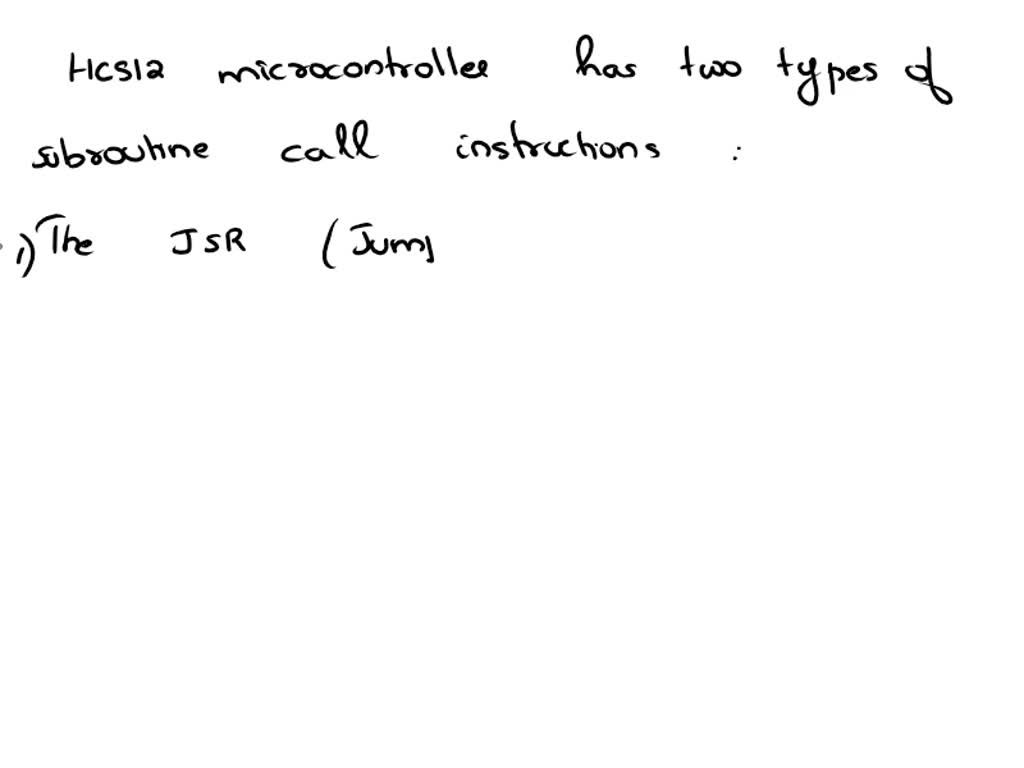 HCS12 microcontroller has two types of
subroutine call instructions :
1) The JSR (Jump